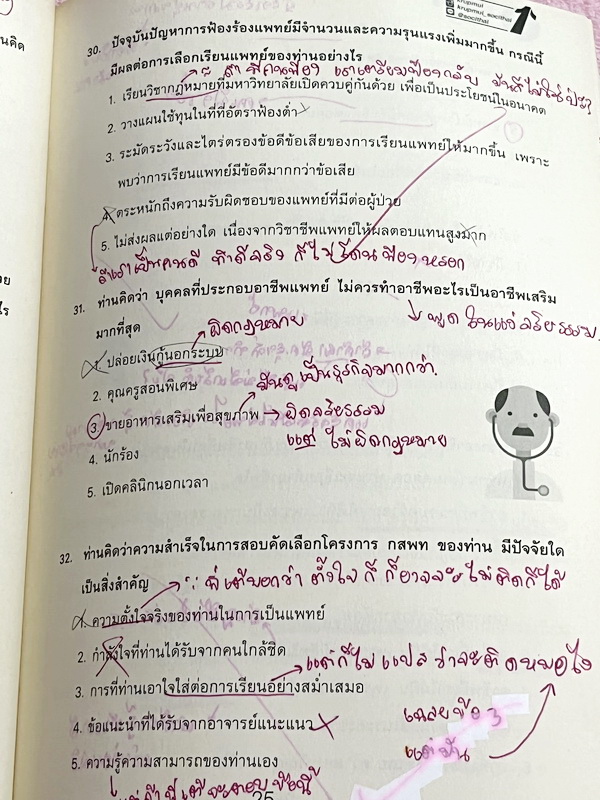 krupmui
krupmui_socithai
@socithai
30. ปัจจุบันปัญหาการฟ้องร้องแพทย์มีจำนวนและความรุนแรงเพิ่มมากขึ้น กรณีนี้
มีผลต่อการเลือกเรียนแพทย์ของท่านอย่างไร
1. เรียนวิชากฎหมายที่มหาวิทยาลัยเปิดควบคู่กันด้วย เพื่อเป็นประโยชน์ในอนาคต
2. วางแผนใช้ทุนในที่ที่อัตราฟ้องต่ำ
3. ระมัดระวังและไตร่ตรองข้อดีข้อเสียของการเรียนแพทย์ให้มากขึ้น เพราะ
พบว่าการเรียนแพทย์มีข้อดีมากกว่าข้อเสีย
4. ตระหนักถึงความรับผิดชอบของแพทย์ที่มีต่อผู้ป่วย
5. ไม่ส่งผลแต่อย่างใด เนื่องจากวิชาชีพแพทย์ให้ผลตอบแทนสูงมาก
ถ้าเราเป็นคนดี ทำดีจริง ก็ไม่โดนฟ้องหรอก
31. ท่านคิดว่า บุคคลที่ประกอบอาชีพแพทย์ ไม่ควรทำอาชีพอะไรเป็นอาชีพเสริม
มากที่สุด
ผิดกฎหมาย
พูดในแง่จริยธรรม
1. ปล่อยเงินกู้นอกระบบ
2. คุณครูสอนพิเศษ
มันดูเป็นธุรกิจมากกว่า.
3. ขายอาหารเสริมเพื่อสุขภาพ → ผิดจริยธรรม
แต่ ไม่ผิดกฎหมาย
4. นักร้อง
5. เปิดคลินิกนอกเวลา
32. ท่านคิดว่าความสำเร็จในการสอบคัดเลือกโครงการ กสพท ของท่าน มีปัจจัยใด
เป็นสิ่งสำคัญ
พี่เต้บอกว่า ตั้งใจ ก็ ก็อาจจะไม่ติดก็ได้
1. ความตั้งใจจริงของท่านในการเป็นแพทย์
2. กำลังใจที่ท่านได้รับจากคนใกล้ชิด
แต่ก็ไม่แปลว่าจะติดหมอไง
3. การที่ท่านเอาใจใส่ต่อการเรียนอย่างสม่ำเสมอ
4. ข้อแนะนำที่ได้รับจากอาจารย์แนะแนว
เฉลยข้อ 3
5. ความรู้ความสามารถของท่านเอง
แต่มัน